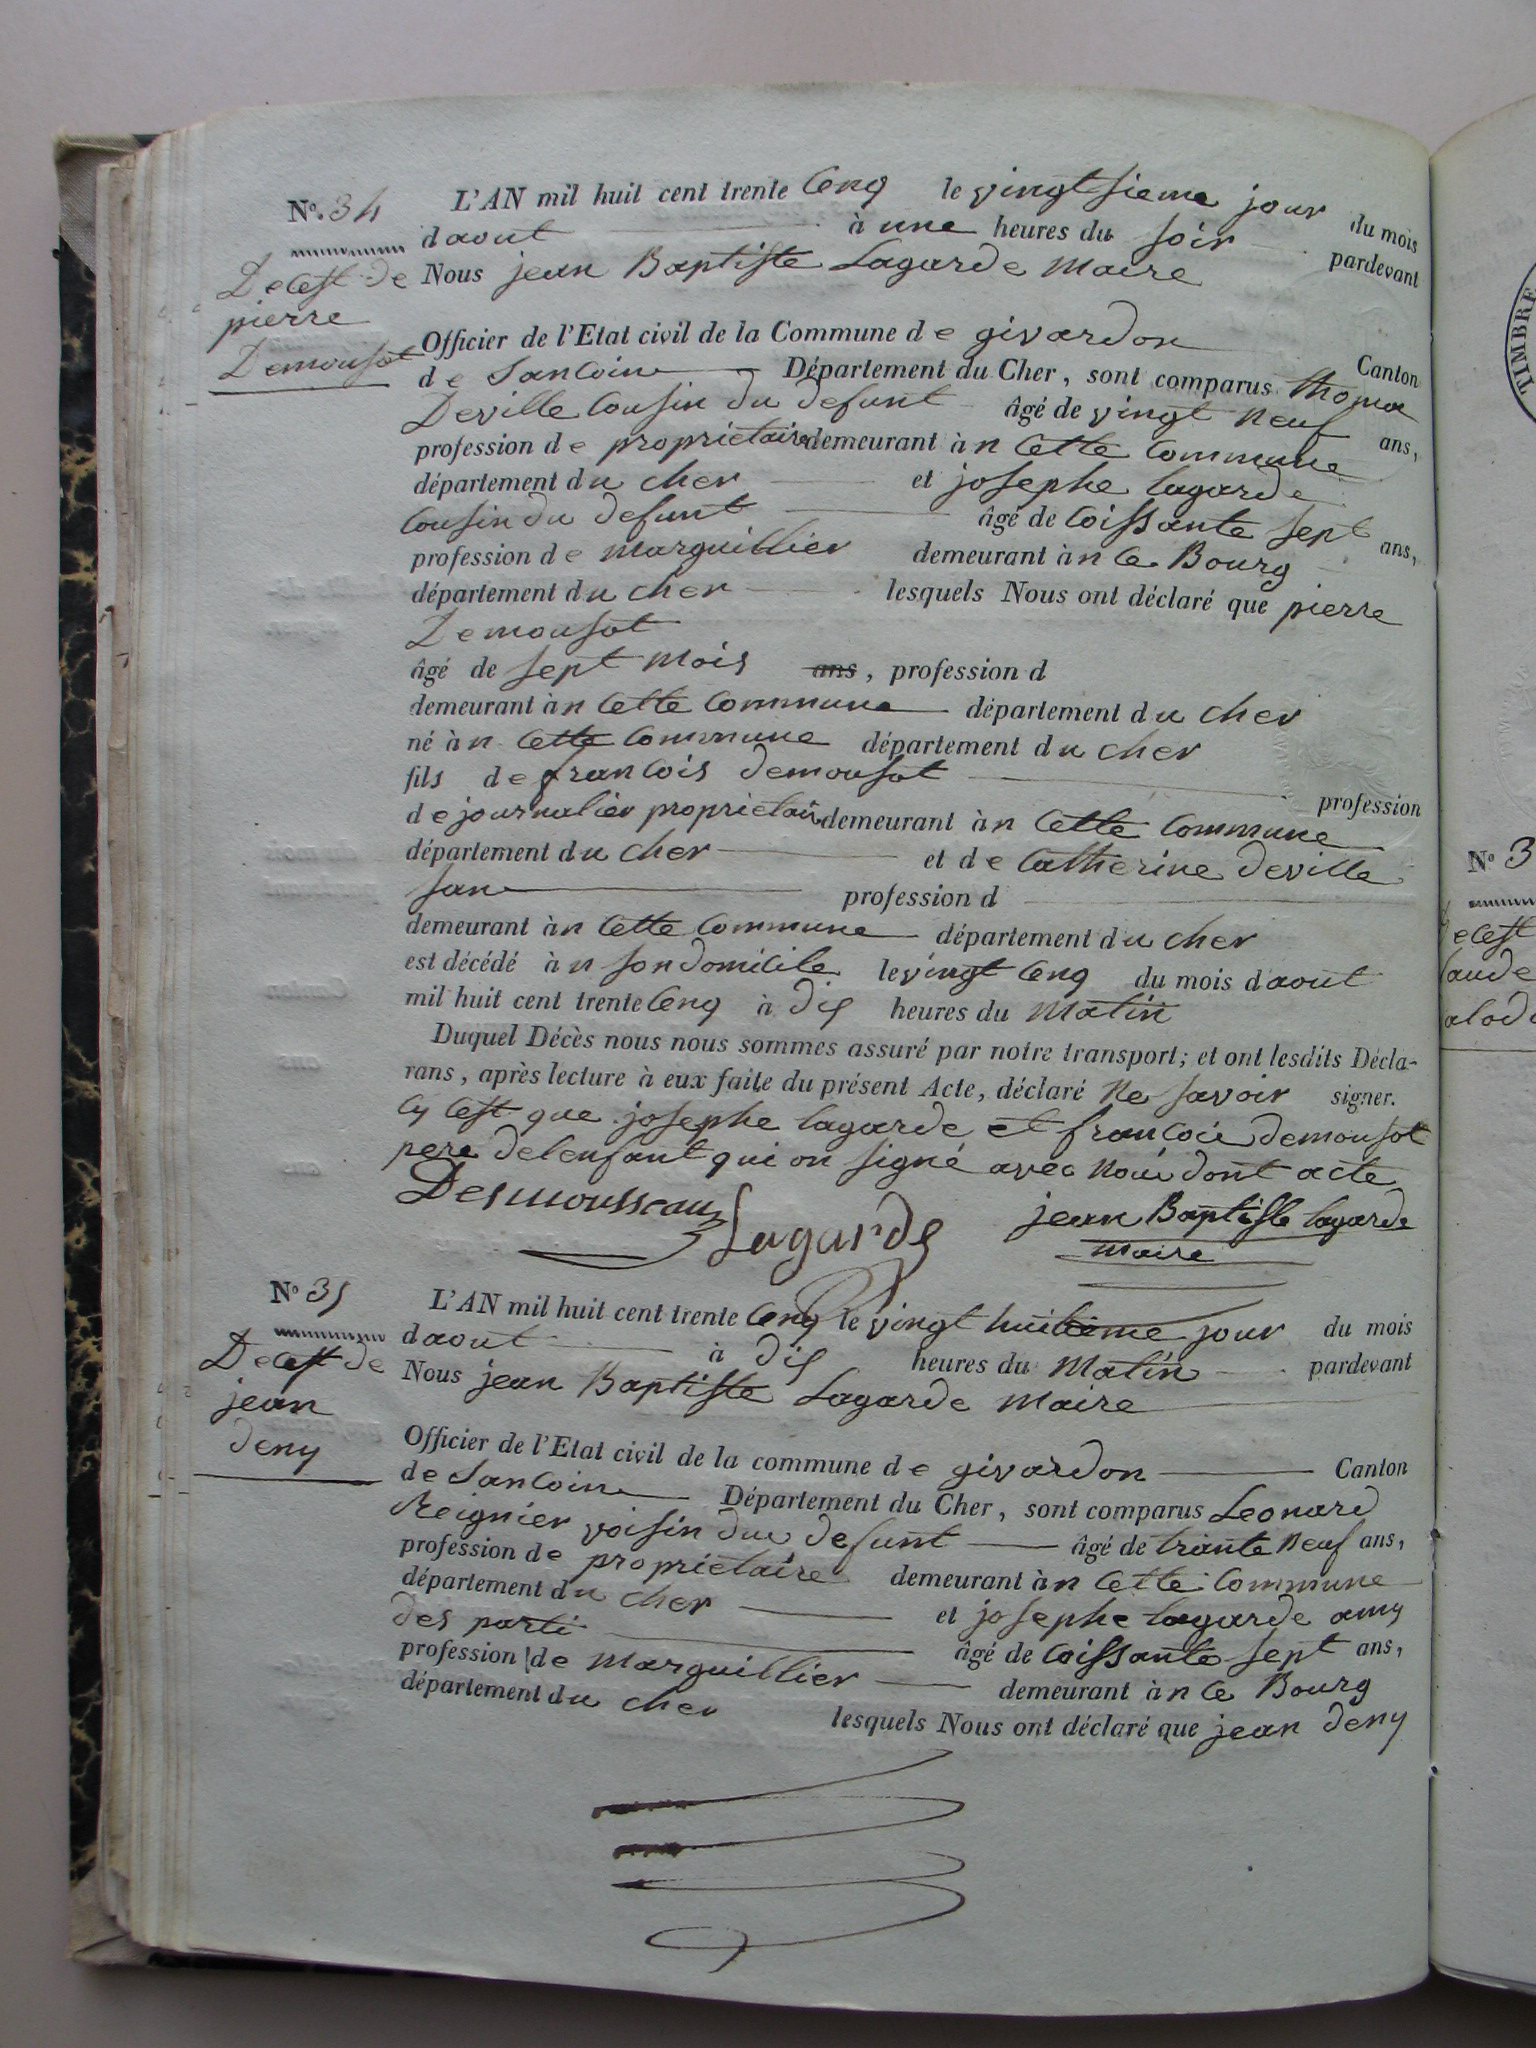 N°. 34
Decest de
pierre
Demousot
L'AN mil huit cent trente Cenq le vingt sieme jour du mois
daout à une heures du soir pardevant
Nous jean Baptiste Lagarde maire
Officier de l'Etat civil de la Commune de givardon Canton
de Sancoin Département du Cher, sont comparus thoma
Deville Cousin du defunt âgé de vingt neuf ans,
profession de proprietaire demeurant àn Cette Commune
département du cher et josephe lagarde
Cousin du defunt âgé de Coissante sept ans,
profession de marguillier demeurant àn le Bourg
département du cher lesquels Nous ont déclaré que pierre
Demousot
âgé de sept mois ans, profession d
demeurant àn Cette Commune département du cher
né àn Cette Commune département du cher
fils de francois demousot profession
de journalier proprietair demeurant àn Cette Commune
département du cher et de Catherine deville
san profession d
demeurant àn Cette Commune département du cher
est décédé àn son domicile le vingt Cenq du mois daout
mil huit cent trente Cenq à dis heures du matin
Duquel Décès nous nous sommes assuré par notre transport; et ont lesdits Décla-
rans, après lecture à eux faite du présent Acte, déclaré ne savoir signer.
Cy Cest que josephe lagarde et francois demousot
pere delenfant qui on signé avec nous dont acte
Desmousseaux Lagarde jean Baptiste lagarde
maire
N° 35
Decest de
jean
deny
L'AN mil huit cent trente Cenq le vingt huitieme jour du mois
daout à dis heures du matin pardevant
Nous jean Baptiste Lagarde maire
Officier de l'Etat civil de la commune de givardon Canton
de Sancoin Département du Cher, sont comparus Leonard
Reignier voisin du defunt âgé de trante neuf ans,
profession de proprietaire demeurant àn Cette Commune
département du cher et josephe lagarde amy
des parti âgé de Coissante sept ans,
profession de marguillier demeurant àn le Bourg
département du cher lesquels Nous ont déclaré que jean deny
TIMBRE
N° 3